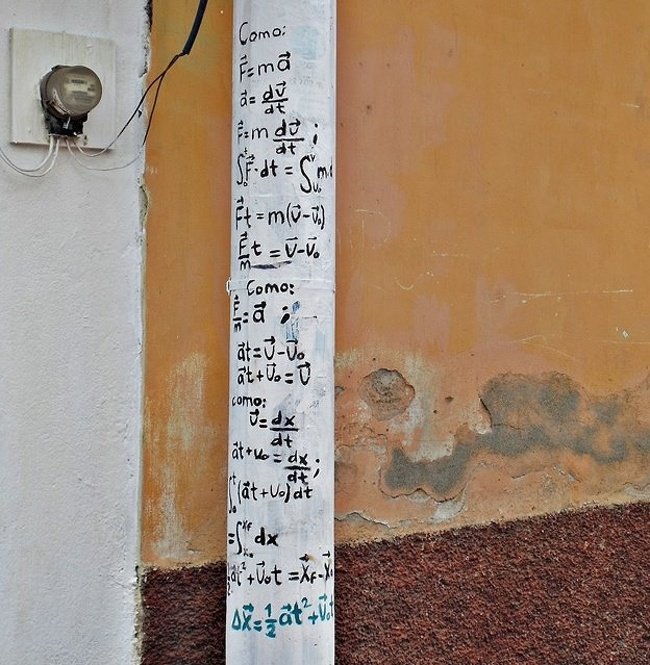 Como:
F⃗=ma⃗
a⃗=dv⃗/dt
F⃗=m dv⃗/dt ;
∫₀ᵗF⃗·dt = ∫ᵥ₀ᵛ m
F⃗t=m(v⃗-v⃗₀)
F⃗/m t = v⃗-v⃗₀
Como:
F⃗/m=a⃗ ;
a⃗t=v⃗-v⃗₀
a⃗t+v⃗₀=v⃗
como:
v⃗=dx/dt
a⃗t+v₀=dx/dt ;
∫₀ᵗ(a⃗t+v₀)dt
=∫ dx
½a⃗t²+v⃗₀t =x⃗F-x⃗
Δx⃗=½a⃗t²+v⃗₀t